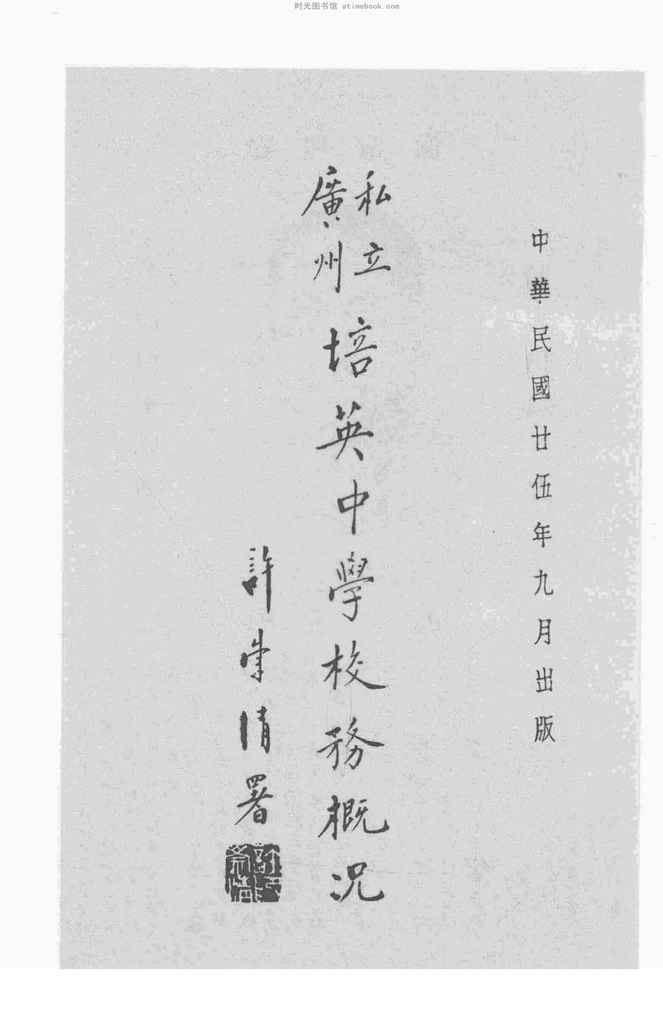 时光图书馆 atimebook.com
中華民國廿伍年九月出版
私立
廣州
培英中學校務概況
許崇清署